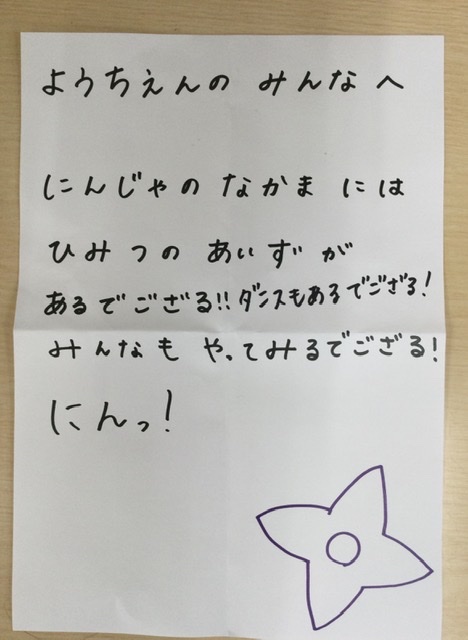 ようちえんの みんなへ
にんじゃの なかま には
ひみつの あいずが
あるでござる!! ダンスもあるでござる!
みんなも やってみるでござる!
にんっ!